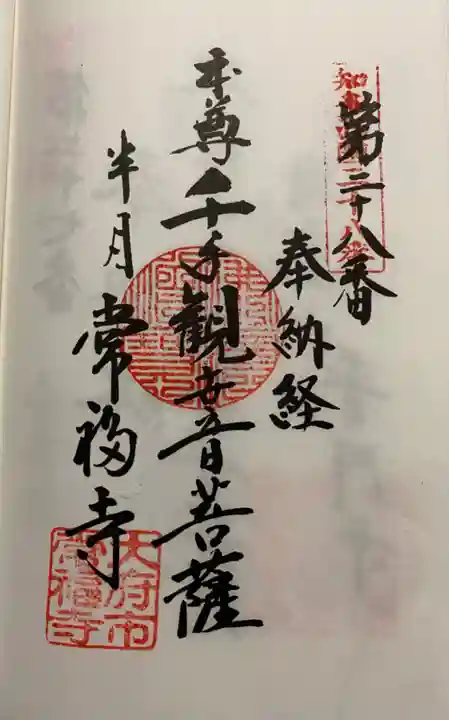 第二十八番
奉納経
本尊千手観世音菩薩
半月常福寺
大府市
常福寺